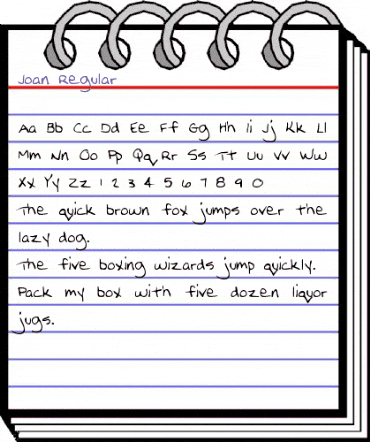 Joan Regular
Aa Bb Cc Dd Ee Ff Gg Hh Ii Jj Kk Ll
Mm Nn Oo Pp Qq Rr Ss Tt Uu Vv Ww
Xx Yy Zz 1 2 3 4 5 6 7 8 9 0
The quick brown fox jumps over the
lazy dog.
The five boxing wizards jump quickly.
Pack my box with five dozen liquor
jugs.